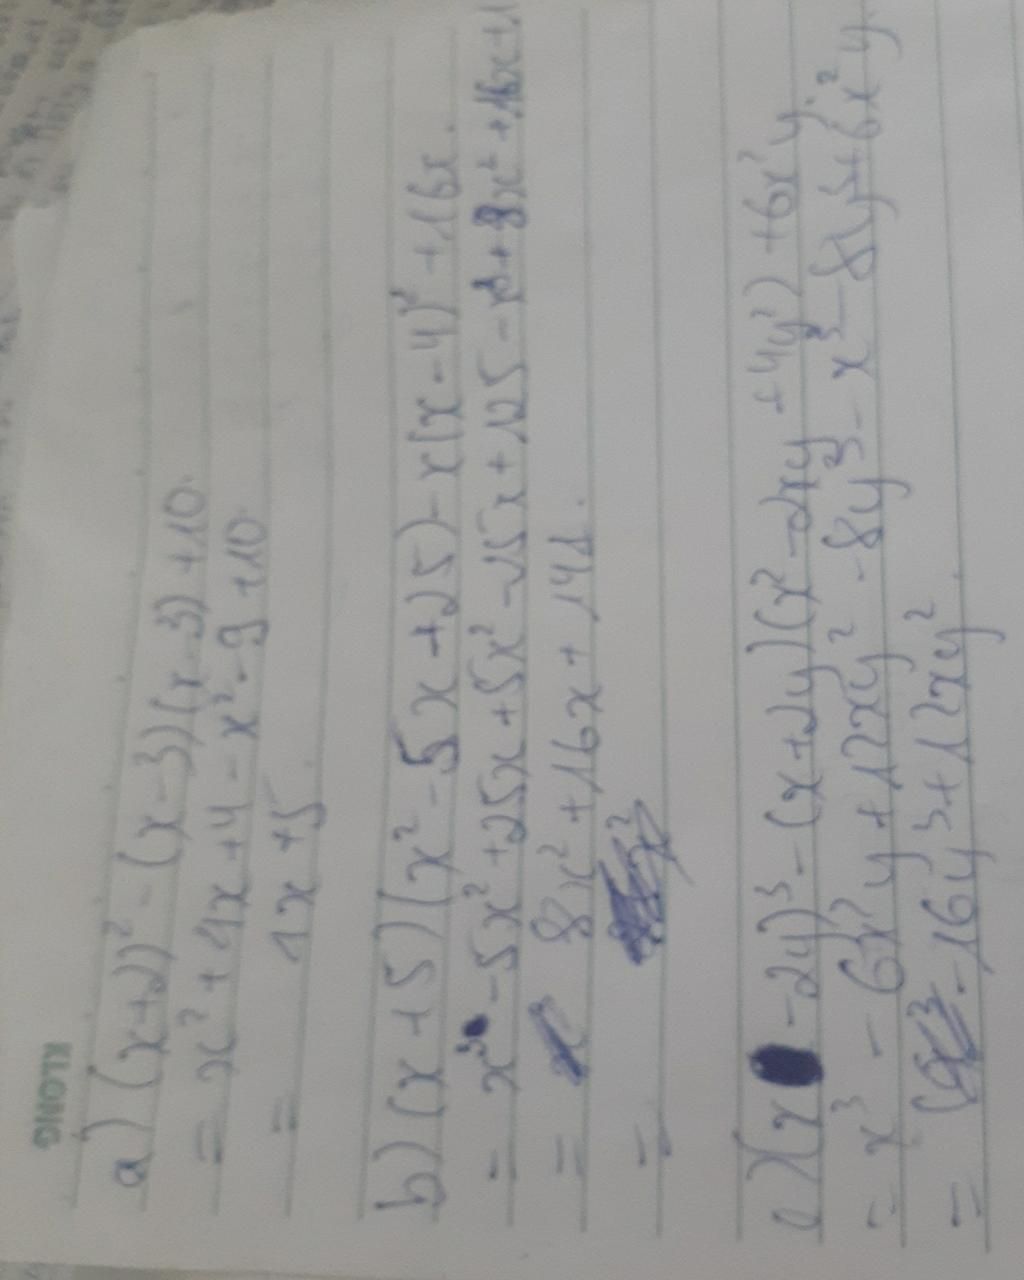 KLONG
a) (x+2)² - (x-3)(x-3) +10.
= x² + 4x +4 - x² - 9 +10
= 4x +5
b) (x+5)(x² - 5x +25) - x(x-4)² +16x.
= x³ - 5x² +25x +5x² - 25x +125 - x³ + 8x² + 16x +1
= 8x² +16x + 141.
=
c) (x - 2y)³ - (x+2y)(x² - 2xy +4y²) +6x²y.
= x³ - 6x²y +12xy² - 8y³ - x³ - 8y³ + 6x²y.
= -16y³ +12xy².